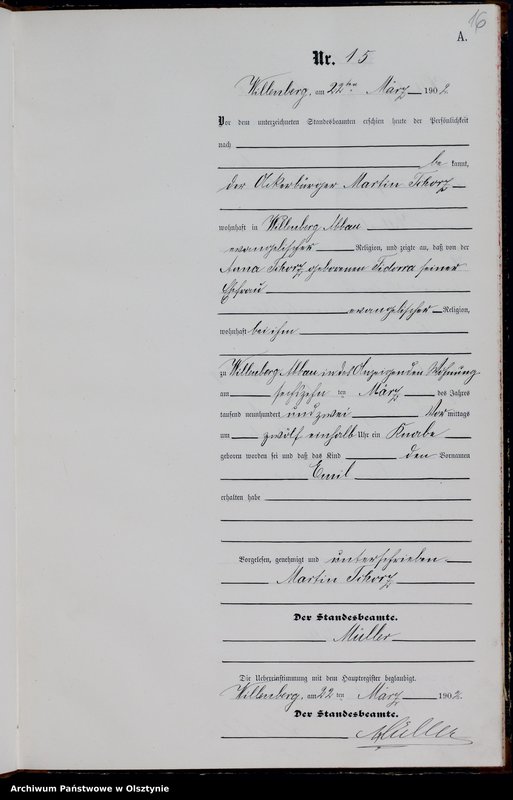 16
A.
Nr. 15
Willenberg, am 22ten März 1902.
Vor dem unterzeichneten Standesbeamten erschien heute der Persönlichkeit
nach
be kannt,
der Ackerbürger Martin Tchorz
wohnhaft in Willenberg Abbau
evangelischer Religion, und zeigte an, daß von der
Anna Tchorz geborenen Fidorra seiner
Ehefrau
evangelischer Religion,
wohnhaft bei ihm
zu Willenberg Abbau in des Anzeigenden Wohnung
am sechszehn ten März des Jahres
tausend neunhundert und zwei Vor mittags
um zwölf einhalb Uhr ein Knabe
geboren worden sei und daß das Kind den Vornamen
Emil
erhalten habe
Vorgelesen, genehmigt und unterschrieben
Martin Tchorz
Der Standesbeamte.
Müller
Die Uebereinstimmung mit dem Hauptregister beglaubigt.
Willenberg, am 22 ten März 1902.
Der Standesbeamte.
Müller
Archiwum Państwowe w Olsztynie